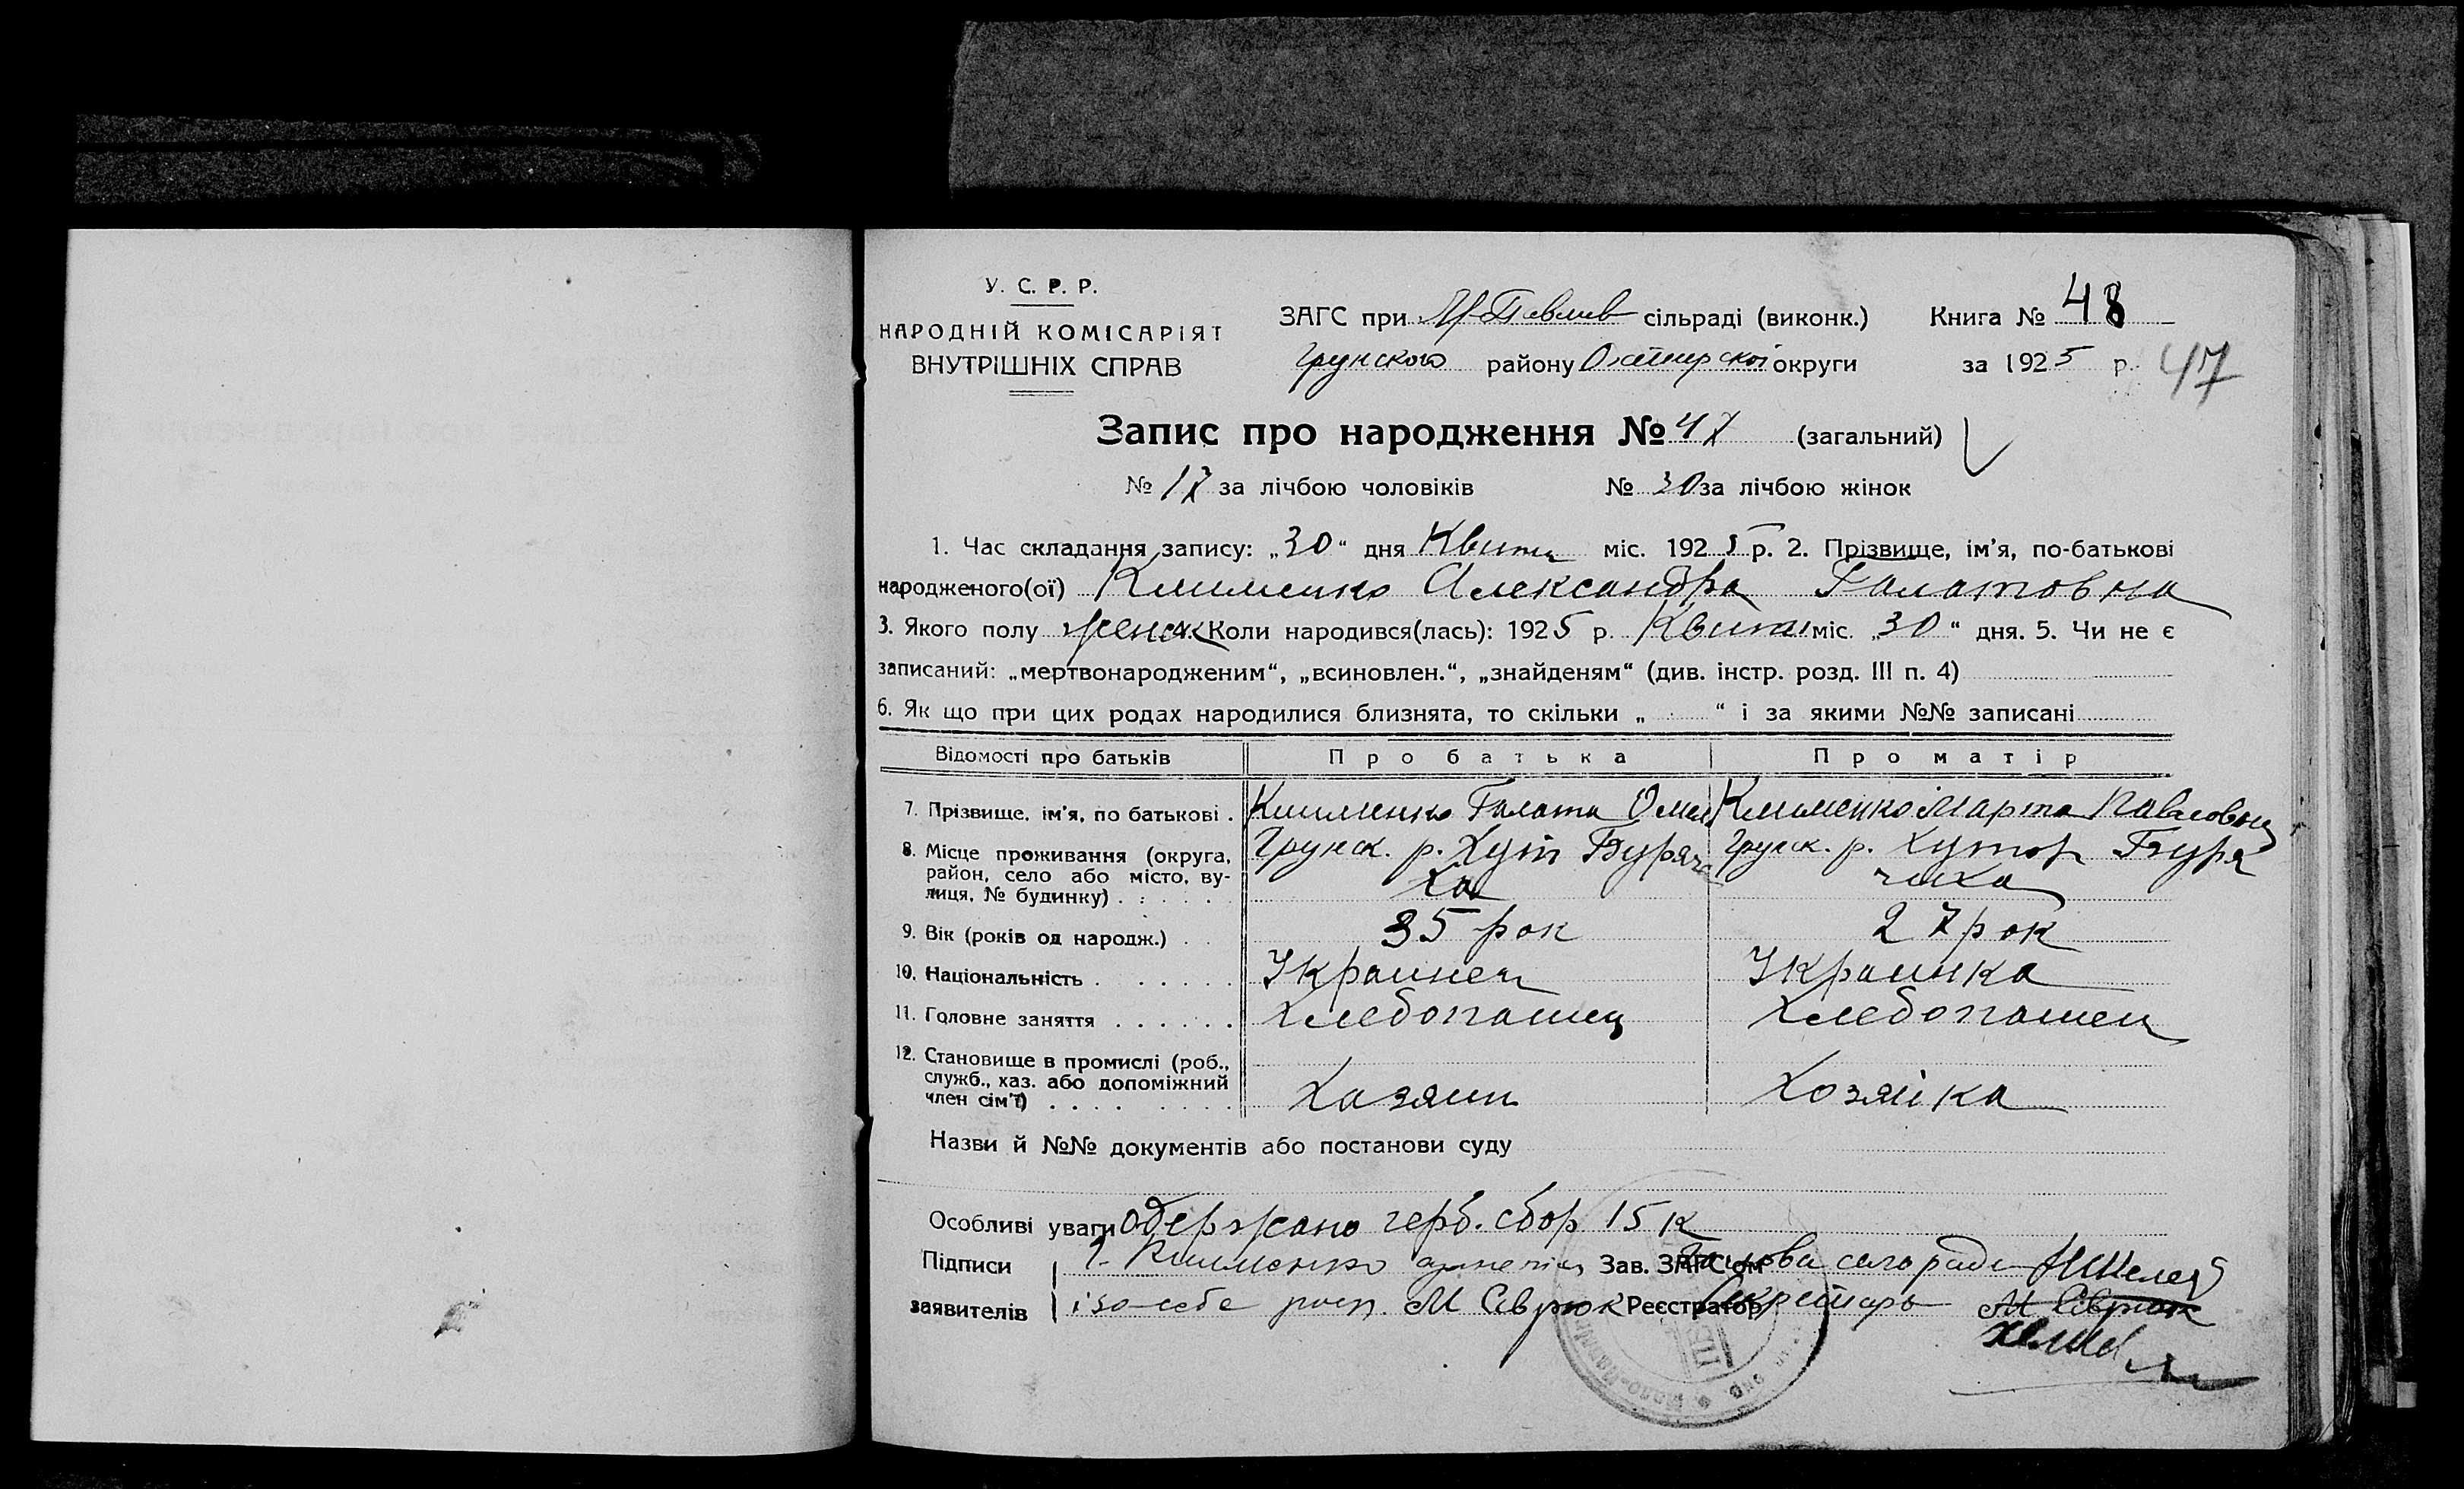 У. С. Р. Р.
НАРОДНІЙ КОМІСАРІЯТ
ВНУТРІШНІХ СПРАВ
ЗАГС при М-Павлив сільраді (виконк.) Книга № 48
Грунского району Охтирскої округи за 1925 р. 47
Запис про народження № 47 (загальний)
№ 17 за лічбою чоловіків № 30 за лічбою жінок
1. Час складання запису: „30“ дня Квитн міс. 1925 р. 2. Прізвище, ім’я, по-батькові
народженого(ої) Клименко Александра Галатовна
3. Якого полу женск 4. Коли народився(лась): 1925 р. Квитн міс. „30“ дня. 5. Чи не є
записаний: „мертвонародженим“, „всиновлен.“, „знайденям“ (див. інстр. розд. III п. 4)
6. Як що при цих родах народилися близнята, то скільки „ “ і за якими №№ записані
Відомості про батьків Про батька Про матір
7. Прізвище, ім’я, по батькові . Клименко Галата Омел Клименко Марта Павловна
8. Місце проживання (округа, Грунск. р. Хут Буряч Грунск. р. Хутор Буря
район, село або місто, ву- ха чиха
лиця, № будинку)
9. Вік (років од народж.) 35 рок 27 рок
10. Національність Украинец Украинка
11. Головне заняття Хлебопашец Хлебопашец
12. Становище в промислі (роб.,
служб., хаз. або допоміжний Хазяин Хозяйка
член сім’ї)
Назви й №№ документів або постанови суду
Особливі уваги Одержано герб. сбор 15 к
Підписи Клименко Зав. ЗАГС’ом Голова сельради
заявителів і за себе росп. М Севрюк Реєстратор Секретарь М Севрюк